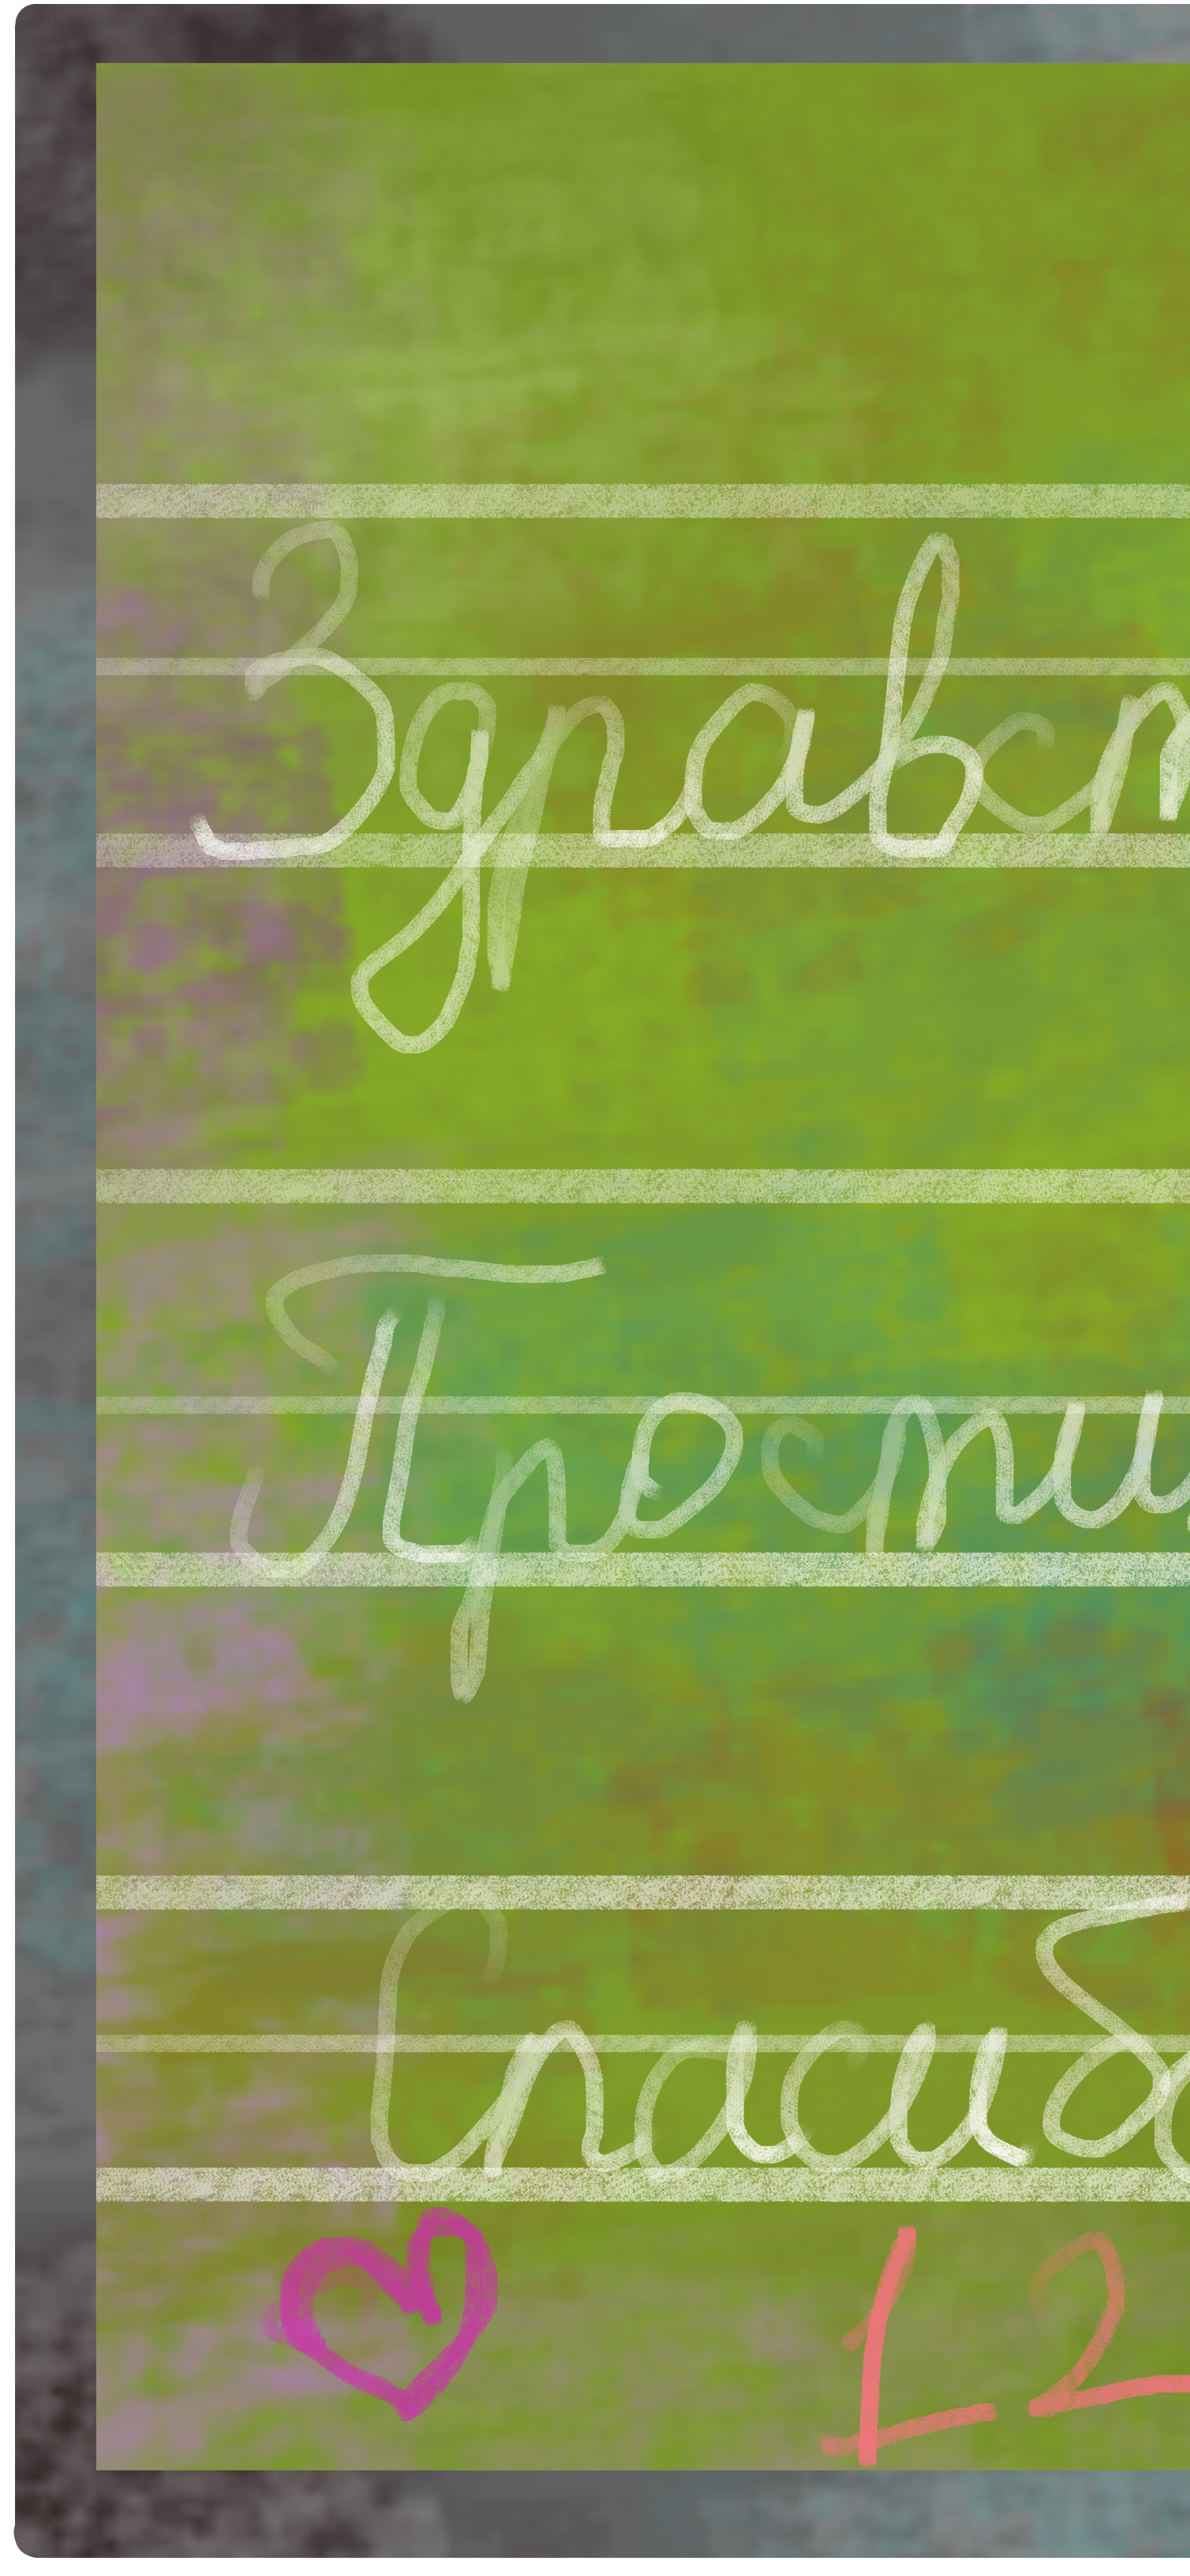 Здравст
Прости
Спасибо
12